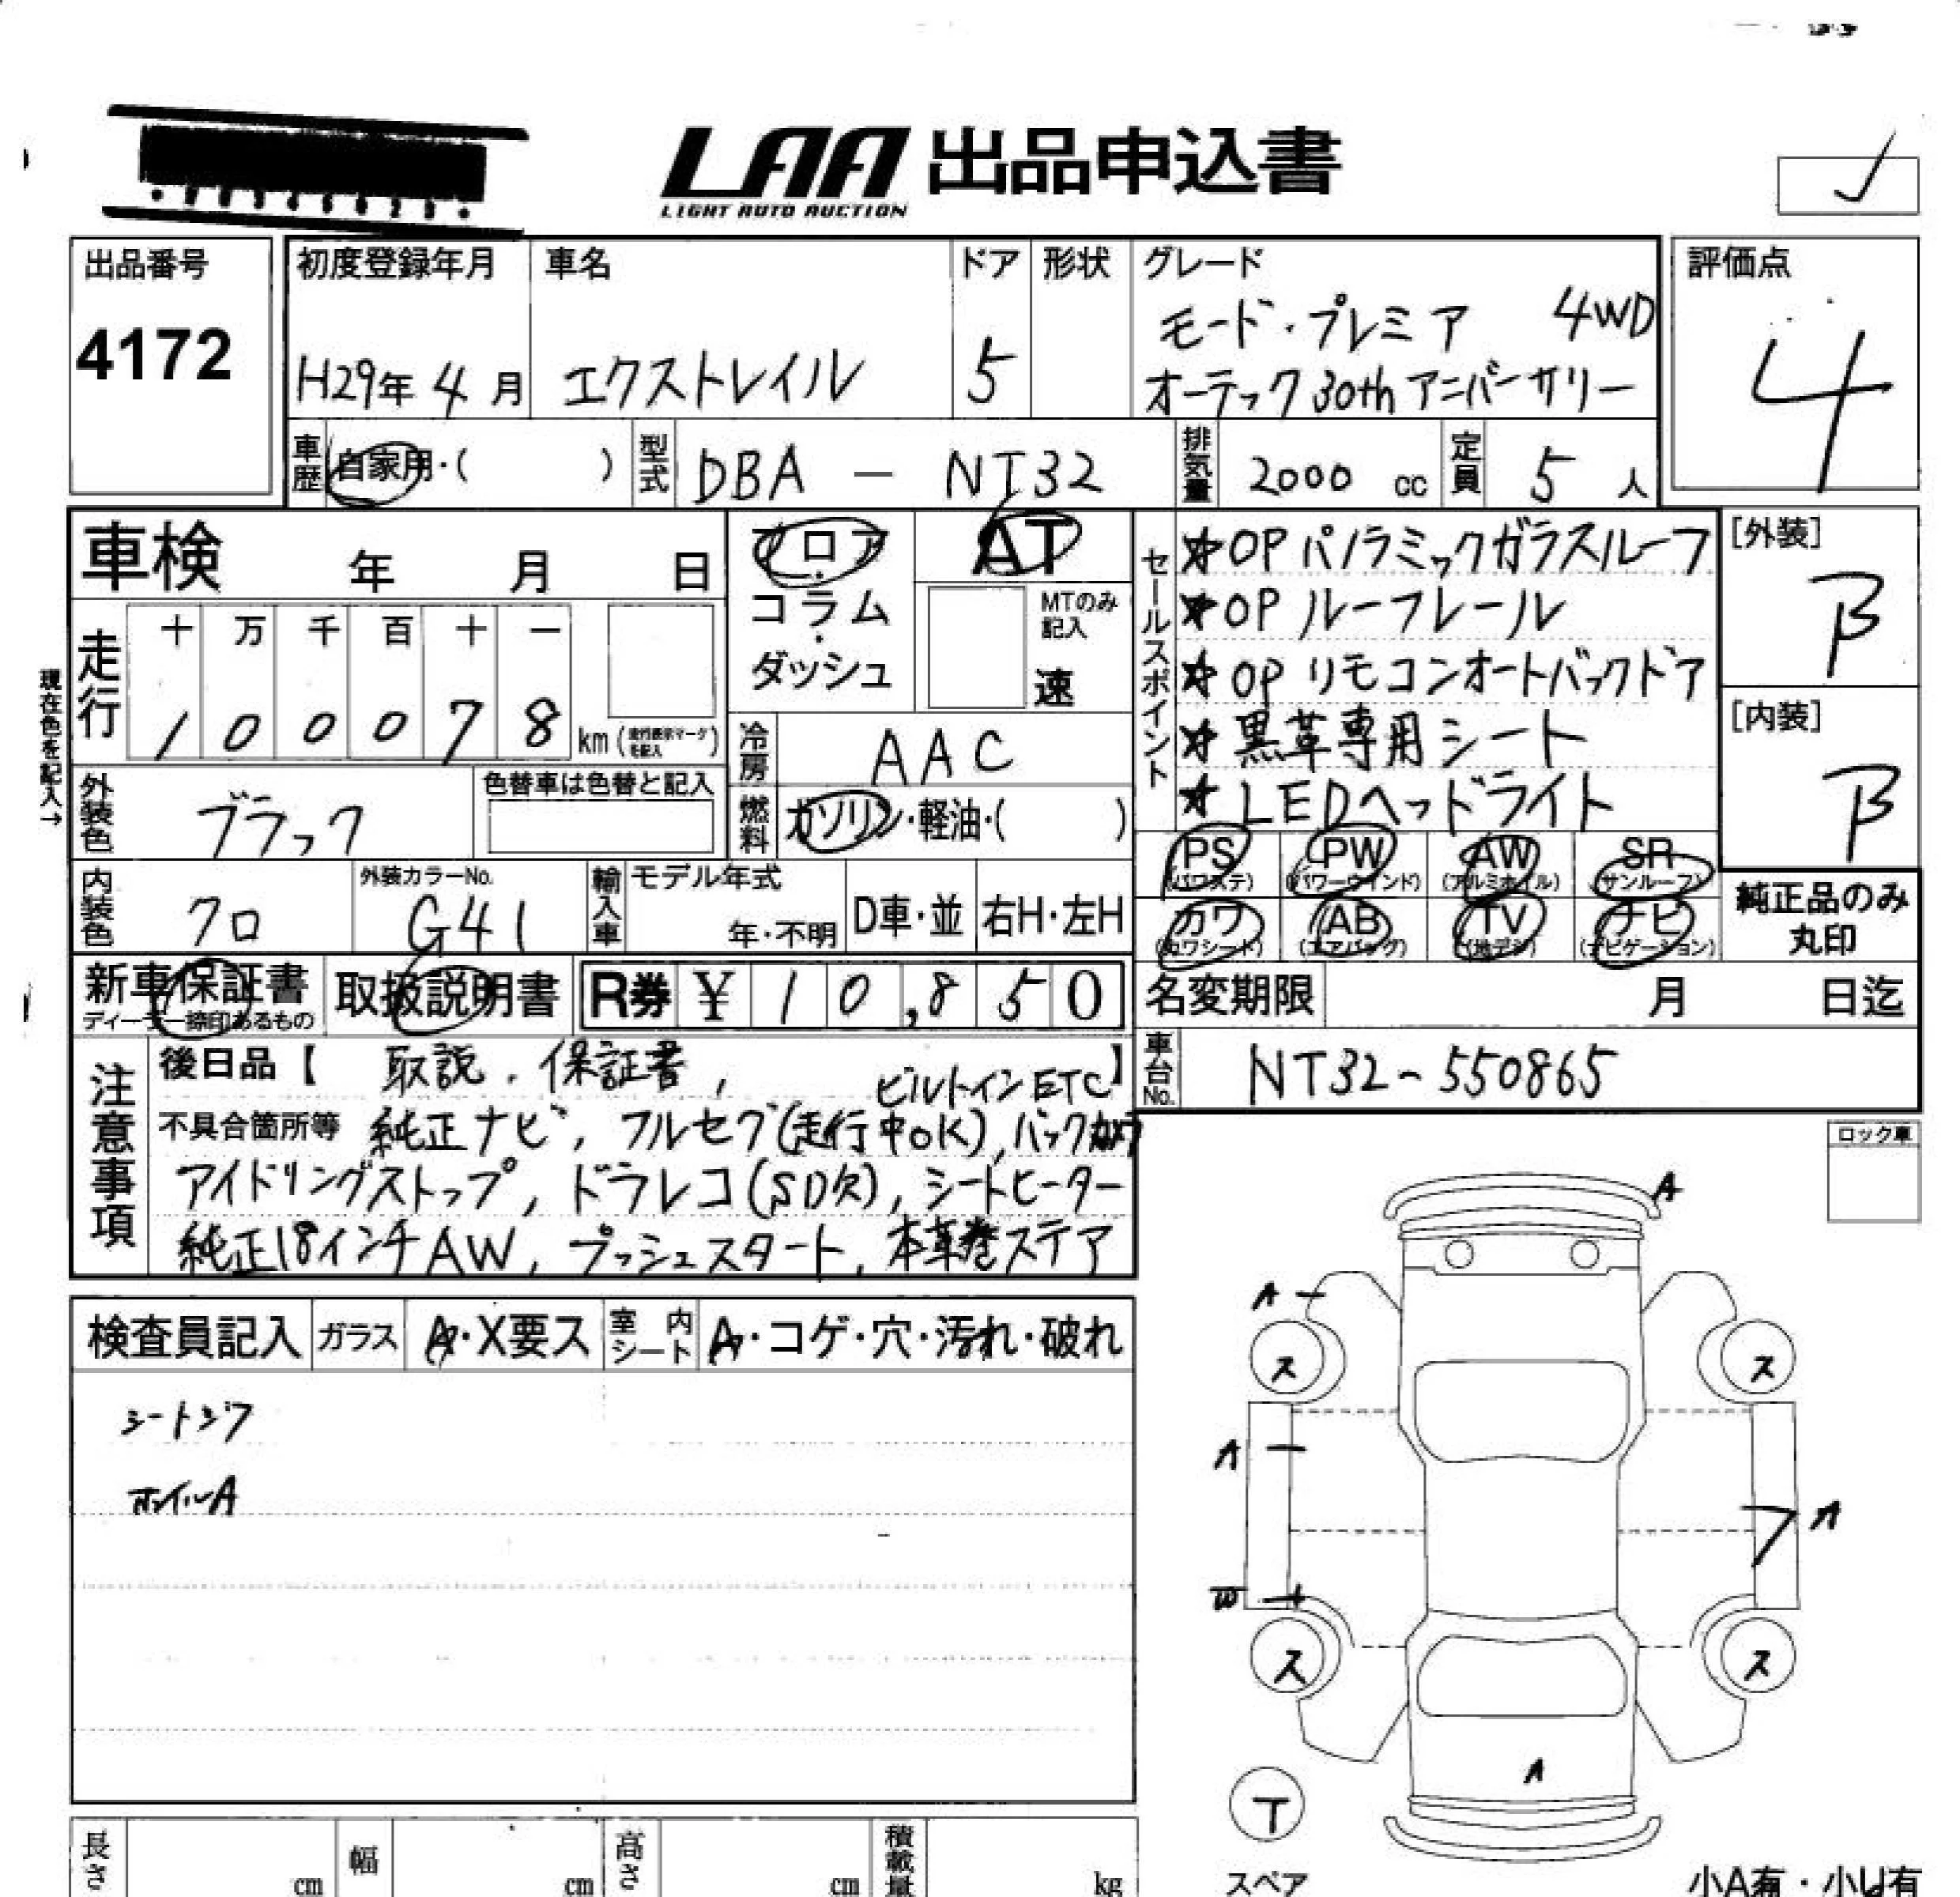 LAA 出品申込書
LIGHT AUTO AUCTION
出品番号
4172
初度登録年月
H29年 4月
車名
エクストレイル
ドア
5
形状
グレード
モード・プレミア 4WD
オーテック 30th アニバーサリー
評価点
4
車歴 自家用・( )
型式 DBA - NT32
排気量 2000 cc
定員 5 人
車検 年 月 日
フロア・コラム・ダッシュ
AT
MTのみ記入
速
走行
十 万 千 百 十 一
1 0 0 0 7 8 km (走行表示マークを記入)
現在色を記入→
冷房 AAC
燃料 ガソリン・軽油・( )
外装色 ブラック
色替車は色替と記入
内装色 クロ
外装カラーNo.
G41
輸入車
モデル年式
年・不明
D車・並
右H・左H
セールスポイント
★OP パノラミックガラスルーフ
★OP ルーフレール
★OP リモコンオートバックドア
★黒革専用シート
★LEDヘッドライト
[外装]
B
[内装]
B
PS (パワステ)
PW (パワーウインド)
AW (アルミホイル)
SR (サンルーフ)
カワ (カワシート)
AB (エアバッグ)
TV (地デジ)
ナビ (ナビゲーション)
純正品のみ丸印
新車保証書
ディーラー捺印あるもの
取扱説明書
R券 ¥ 10,850
名変期限 月 日迄
車台No. NT32-550865
注意事項
後日品【 取説、保証書、 】
ビルトインETC
不具合箇所等 純正ナビ, フルセグ(走行中OK), バックカメラ
アイドリングストップ, ドラレコ(SD欠), シートヒーター
純正18インチAW, プッシュスタート, 本革巻ステア
ロック車
検査員記入
ガラス A・X要ス
室内シート A・コゲ・穴・汚れ・破れ
シートシワ
ホイルA
A
A
ス ス
A
A
W
ス ス
A
T
スペア
小A有・小U有
長さ cm
幅 cm
高さ cm
積載量 kg